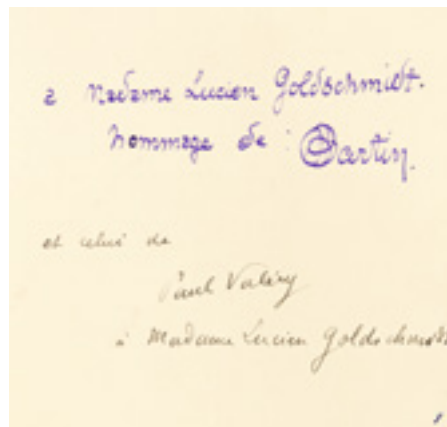 a Madame Lucien Goldschmidt.
hommage de : Bartin
et celui de
Paul Valéry
à Madame Lucien Goldschmidt